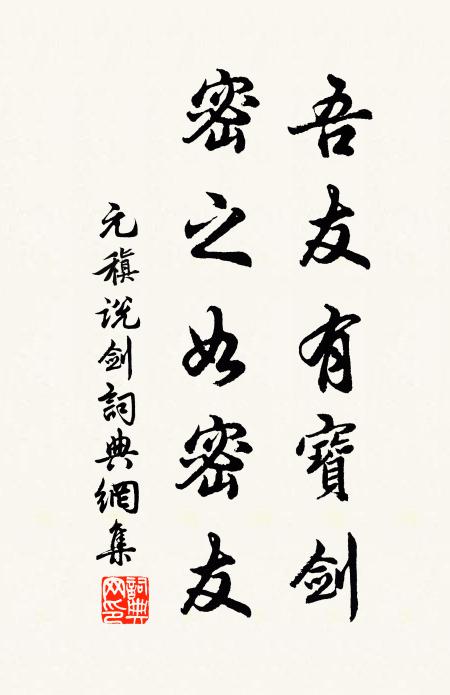 吾友有寶劍
密之如密友
元稹说劍詞典網集
詞典
网印